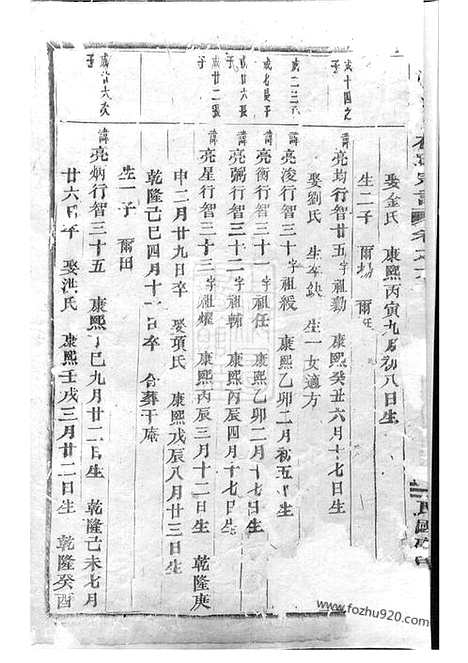 娶金氏　康熙丙寅九月初八日生
生二子　爾場　爾
成十四之子
諱亮均行智廿五字祖勳　康熙癸丑六月十七日生
娶劉氏　生卒缺　生一女適方
成二三子
諱亮淩行智三十字祖綬　康熙乙卯二月初五日生
成七長子
諱亮衡行智三十一字祖任　康熙乙卯二月十七日生
成廿六長子
諱亮弼行智三十二字祖輔　康熙丙辰四月十七日生
成廿二子
諱亮星行智三十三字祖耀　康熙丙辰三月十二日生　乾隆庚
申二月廿九日卒　娶項氏　康熙戊辰八月廿三日生
乾隆己巳四月十一日卒　合葬于庵
生一子　爾田
成廿六次子
諱亮炳行智三十五　康熙丁巳九月廿二日生　乾隆己未七月
廿六日卒　娶洪氏　康熙壬戌三月廿二日生　乾隆癸酉
www.fozhu920.com